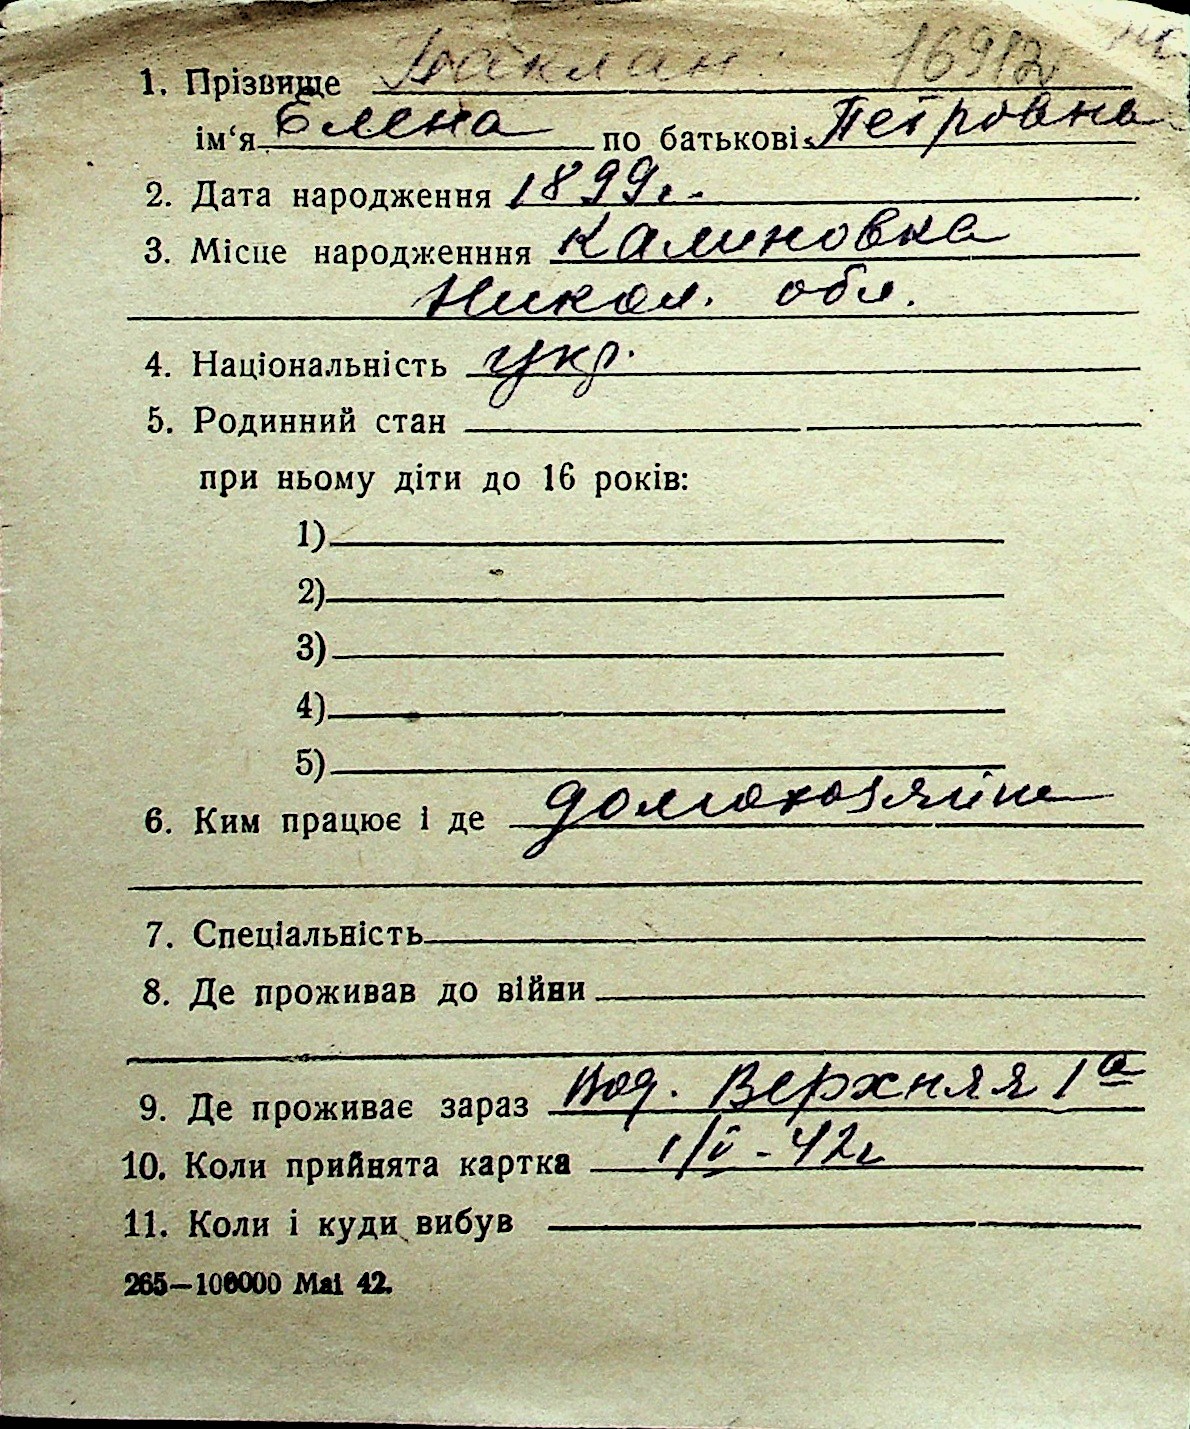 1. Прізвище Баклан 16912
ім‘я Елена по батькові Петровна
2. Дата народження 1899г.
3. Місце народженння Калиновка
Никол. обл.
4. Національність укр.
5. Родинний стан
при ньому діти до 16 років:
1)
2)
3)
4)
5)
6. Ким працює і де домохозяйка
7. Спеціальність
8. Де проживав до війни
9. Де проживає зараз Вод. Верхняя 1а
10. Коли прийнята картка 1/V-42г
11. Коли і куди вибув
265—100000 Mai 42.